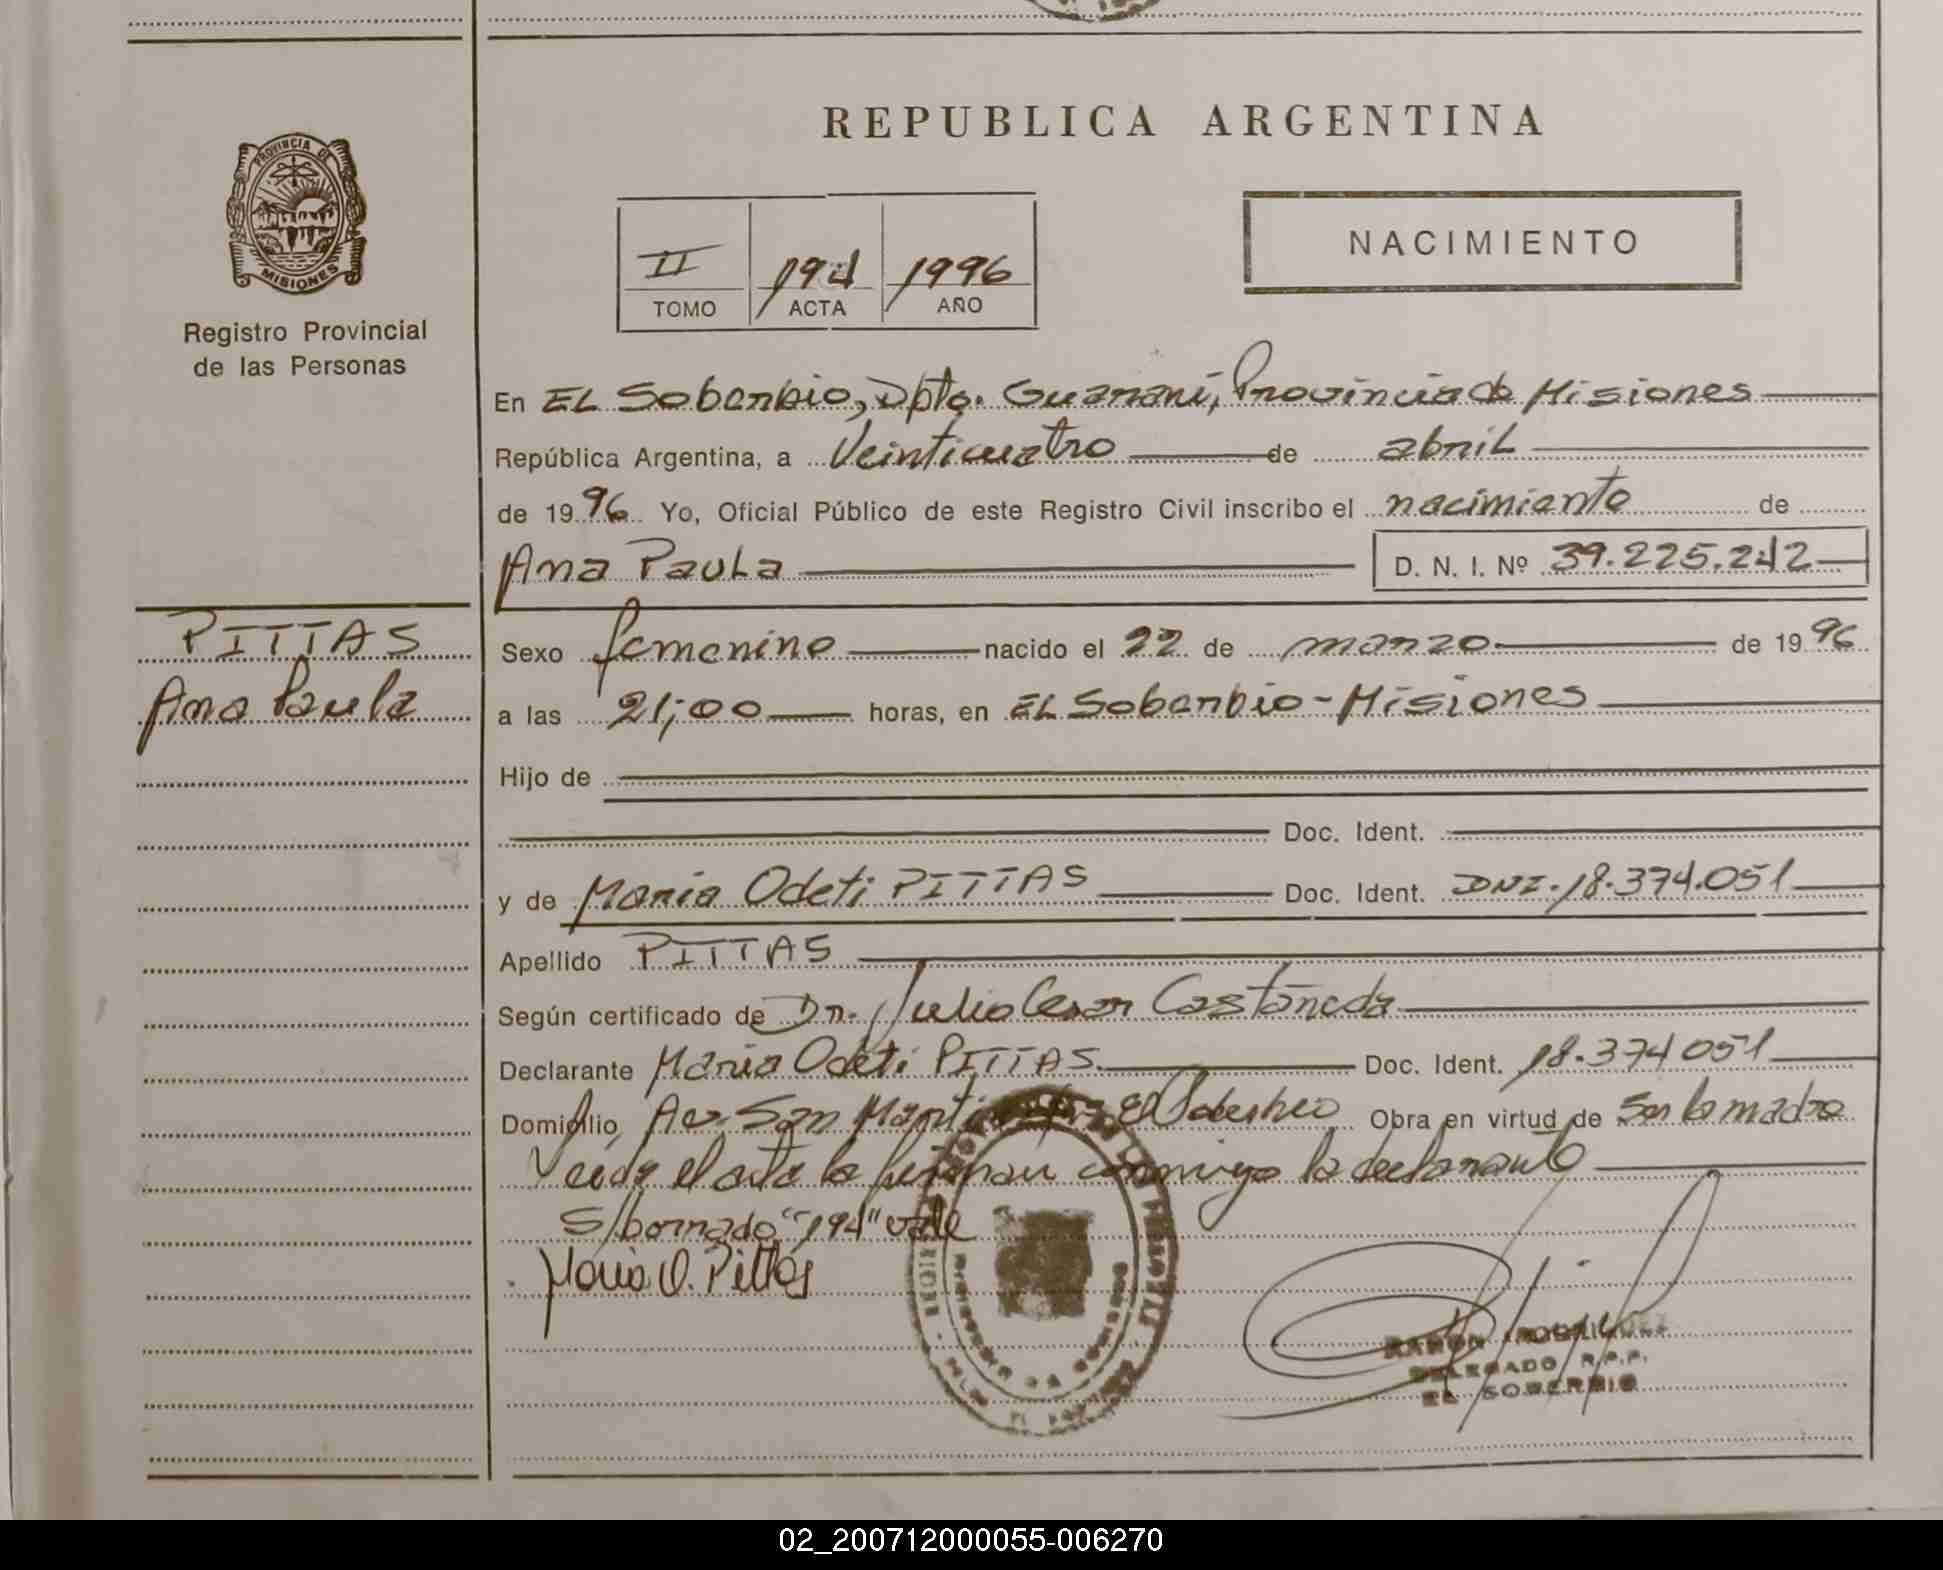 REPUBLICA ARGENTINA
PROVINCIA DE
MISIONES
Registro Provincial
de las Personas
II 194 1996
TOMO ACTA AÑO
NACIMIENTO
En EL Soberbio, Dpto. Guaraní, Provincia de Misiones
República Argentina, a Veinticuatro de abril
de 1996 Yo, Oficial Público de este Registro Civil inscribo el nacimiento de
Ana Paula D. N. I. Nº 39.225.242
PITTAS
Ana Paula
Sexo femenino nacido el 22 de marzo de 1996
a las 21;00 horas, en EL Soberbio - Misiones
Hijo de
Doc. Ident.
y de Maria Odeti PITTAS Doc. Ident. DNI. 18.374.051
Apellido PITTAS
Según certificado de Dr. Julio Cesar Castañeda
Declarante Maria Odeti PITTAS Doc. Ident. 18.374051
Domicilio Av. San Martin El Soberbio Obra en virtud de Ser la madre
Leida el acta la firman conmigo la declarante
S/borrado "194" vale
Maria O. Pittas
RAMON
DELEGADO R.P.P.
EL SOBERBIO
02_200712000055-006270